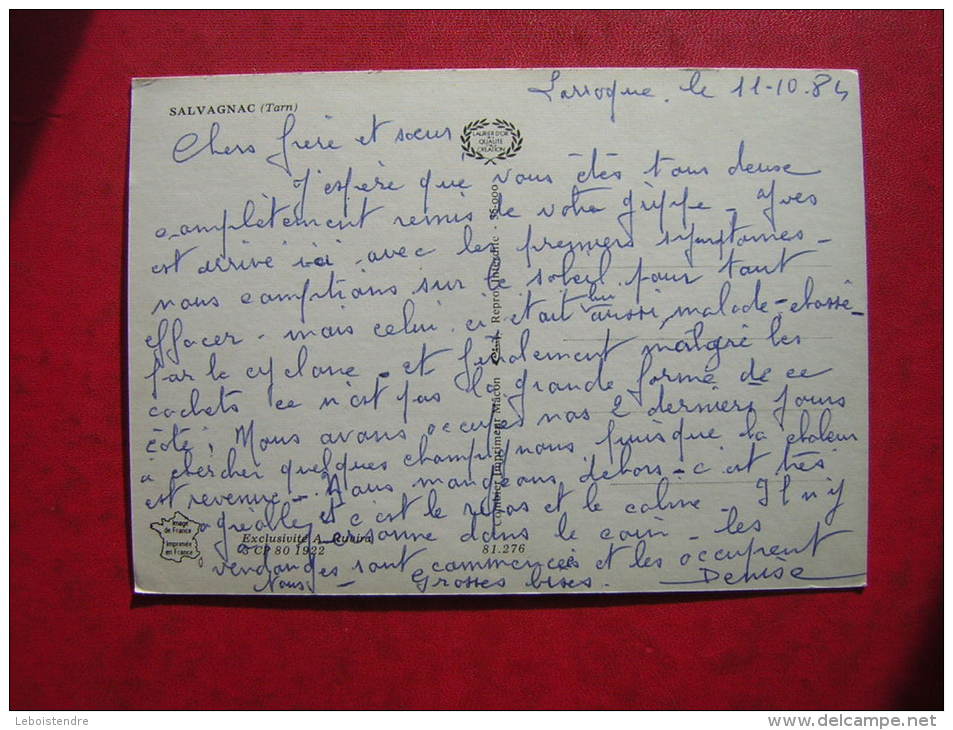 SALVAGNAC (Tarn)
Larroque, le 11-10.84
Chers frère et sœur,
LAURIER D'OR
DE
QUALITÉ
CREATION
J'espère que vous êtes tous deux
complètement remis de votre grippe - Yves
est arrivé ici avec les premiers symptomes -
nous comptions sur le soleil pour tout
effacer - mais celui-ci était lui aussi malade - chassé
par le cyclone - et finalement malgré les
cachets ce n'est pas la grande forme de ce
côté ; Nous avons occupé nos 2 derniers jours
à chercher quelques champignons puisque la chaleur
est revenue - Nous mangeons dehors - c'est très
agréable, et c'est le repos et le calme. Il n'y
a personne dans le coin - les
vendanges sont commencées et les occupent
Nous - Grosses bises. Denise
Combier Imprimeur Mâcon Reprod. Interdite - 35-000
Image
de France
Imprimée
en France
Exclusivité A. Rubira
CP 80 1922
81.276
Leboistendre
www.delcampe.net